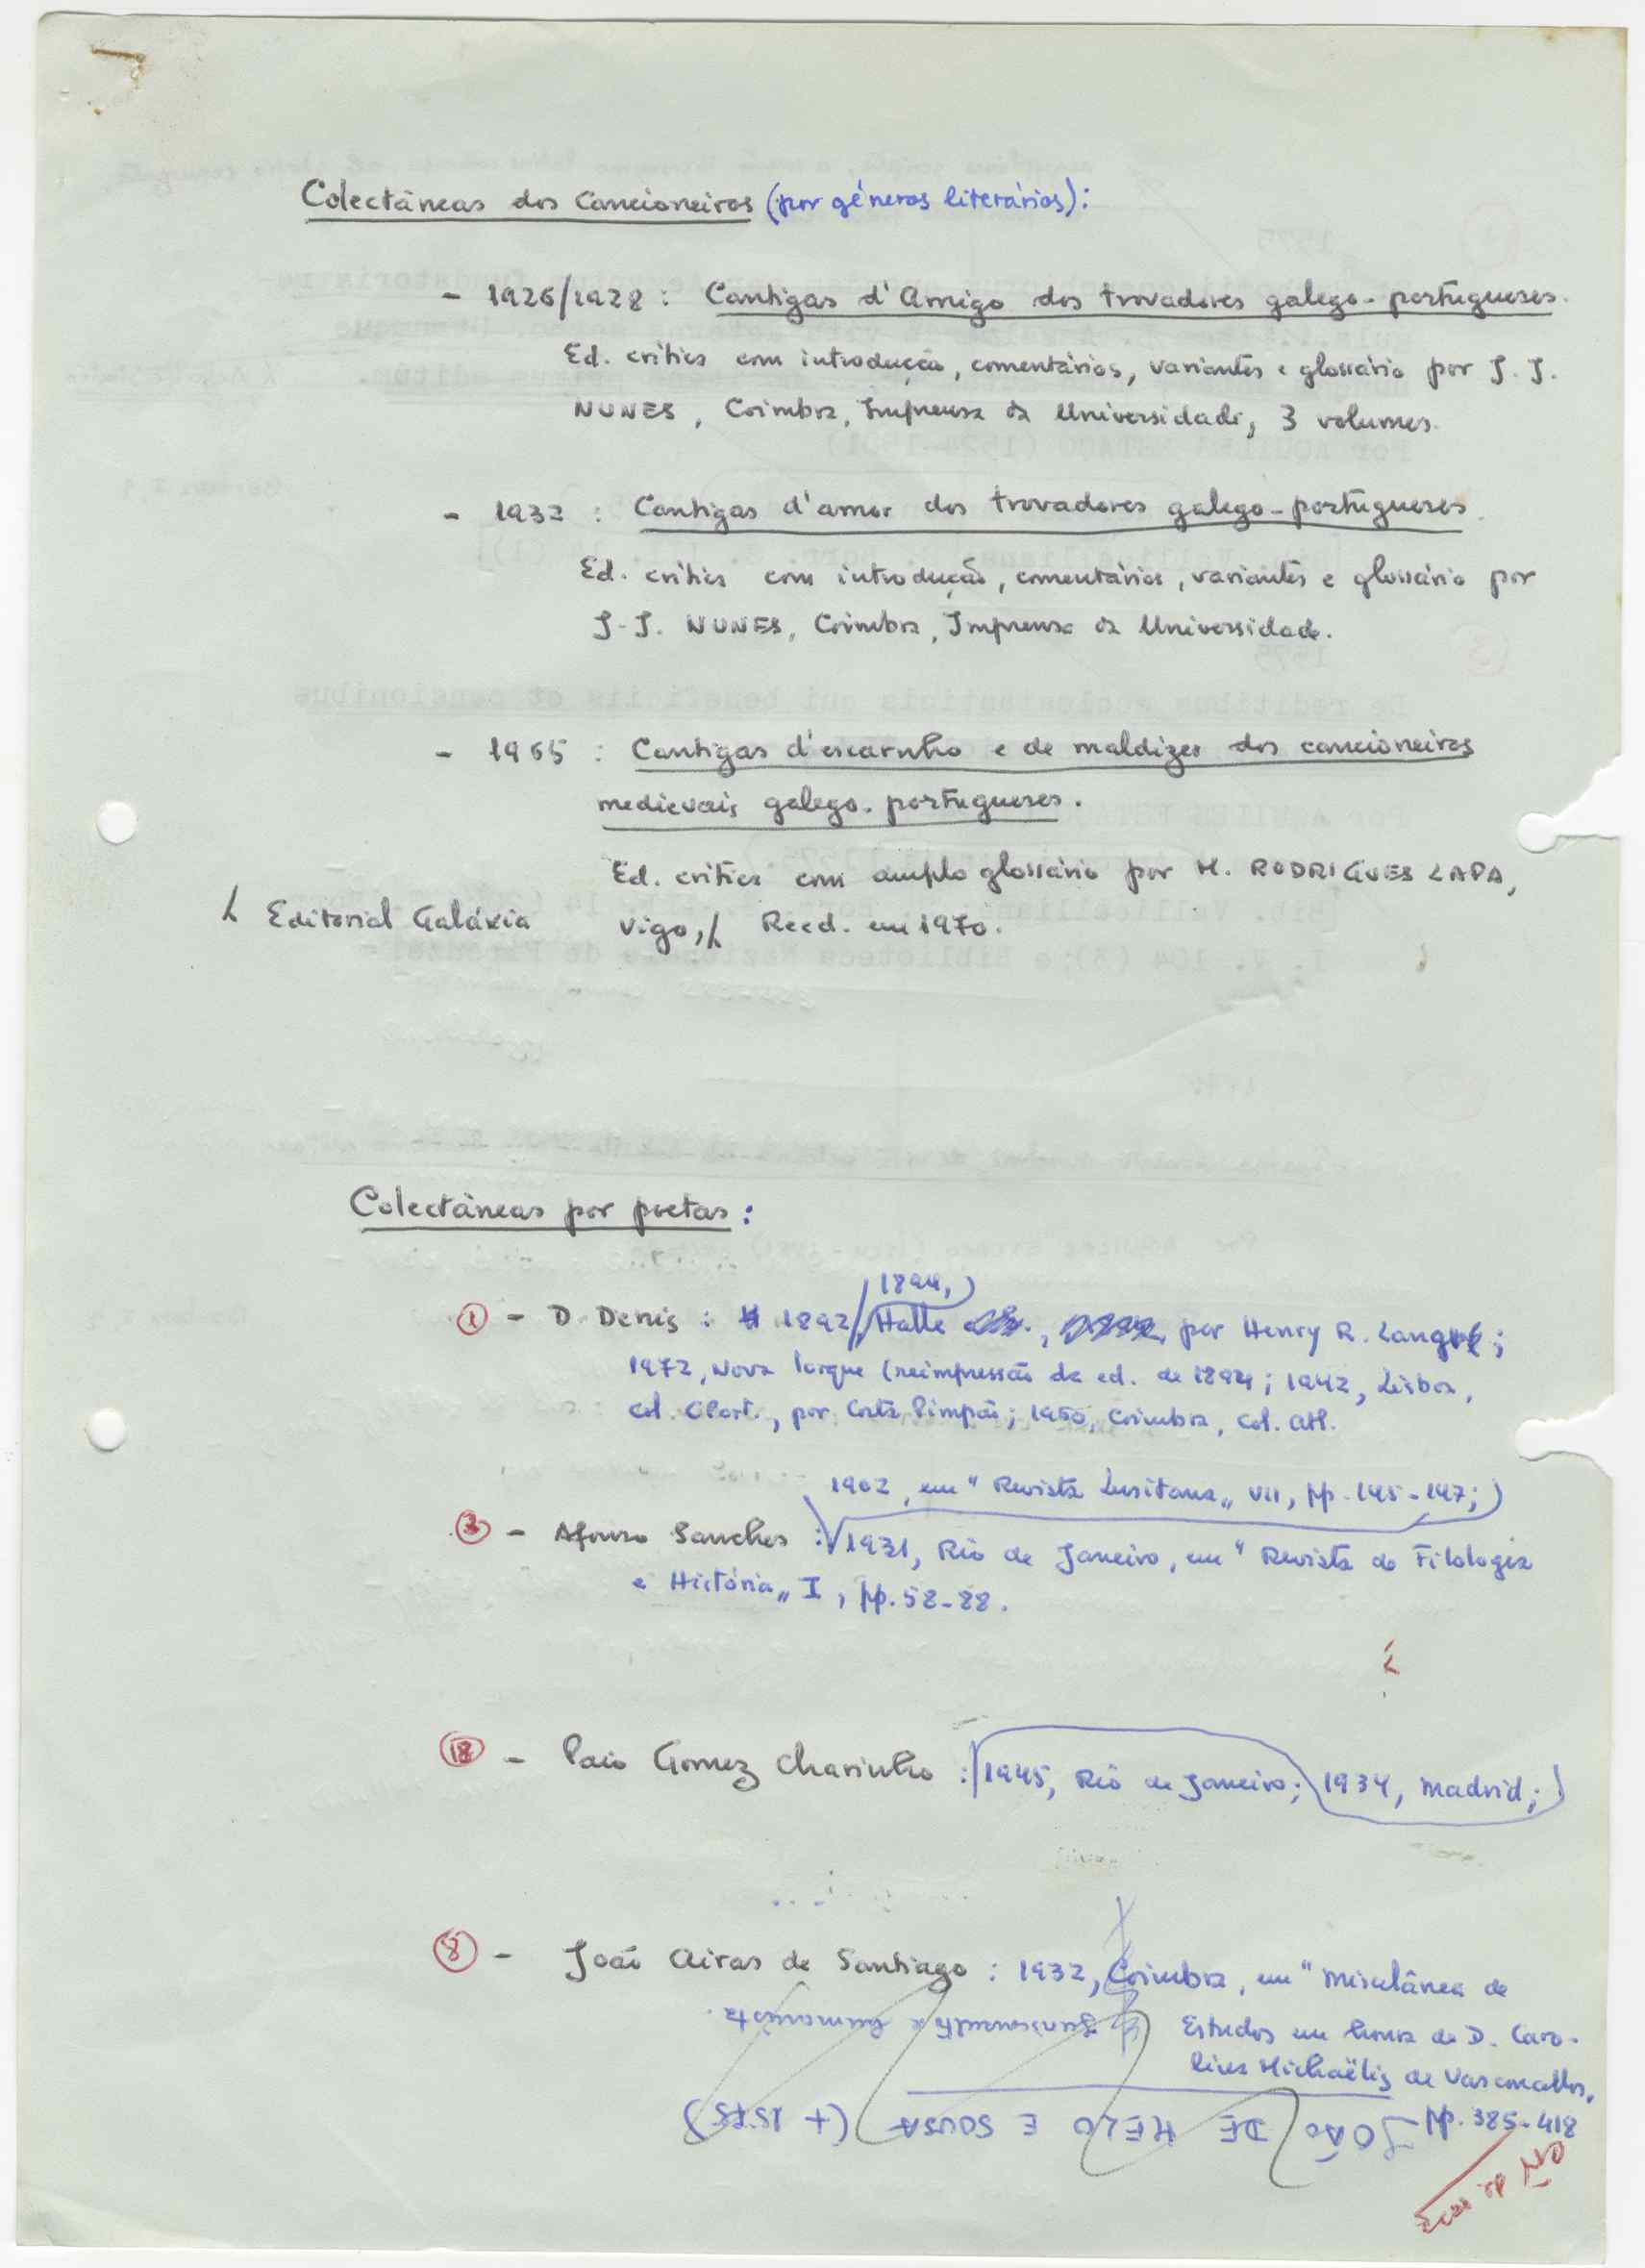 Colectâneas dos Cancioneiros (por géneros literários):
- 1926/1928 : Cantigas d'Amigo dos trovadores galego-portugueses.
Ed. crítica com introdução, comentários, variantes e glossário por J. J.
NUNES, Coimbra, Imprensa da Universidade, 3 volumes.
- 1932 : Cantigas d'amor dos trovadores galego-portugueses.
Ed. crítica com introdução, comentários, variantes e glossário por
J-J. NUNES, Coimbra, Imprensa da Universidade.
- 1965 : Cantigas d'escarnho e de maldizer dos cancioneiros
medievais galego-portugueses.
Ed. crítica com amplo glossário por M. RODRIGUES LAPA,
Vigo, Reed. em 1970.
Editorial Galáxia
Colectâneas por poetas :
1 - D. Denis : 1892/ Halle por Henry R. Lang ;
1894,
1972, Nova Iorque (reimpressão da ed. de 1894; 1942, Lisboa,
col. CPort., por Costa Pimpão; 1960, Coimbra, col. Atl.
1902, em "Revista Lusitana" VII, pp. 145-147;
2 - Afonso Sanches : 1931, Rio de Janeiro, em "Revista de Filologia
e História" I, pp. 58-88.
18 - Paio Gomez Charinho : 1945, Rio de Janeiro; 1934, Madrid;
8 - João Airas de Santiago : 1932, Coimbra, em "Miscelânea de
Estudos em honra de D. Caro-
lina Michaëlis de Vasconcellos,
pp. 385-418
JOÃO DE MELO E SOUSA († 1575)
Jurisconsulto e humanista.